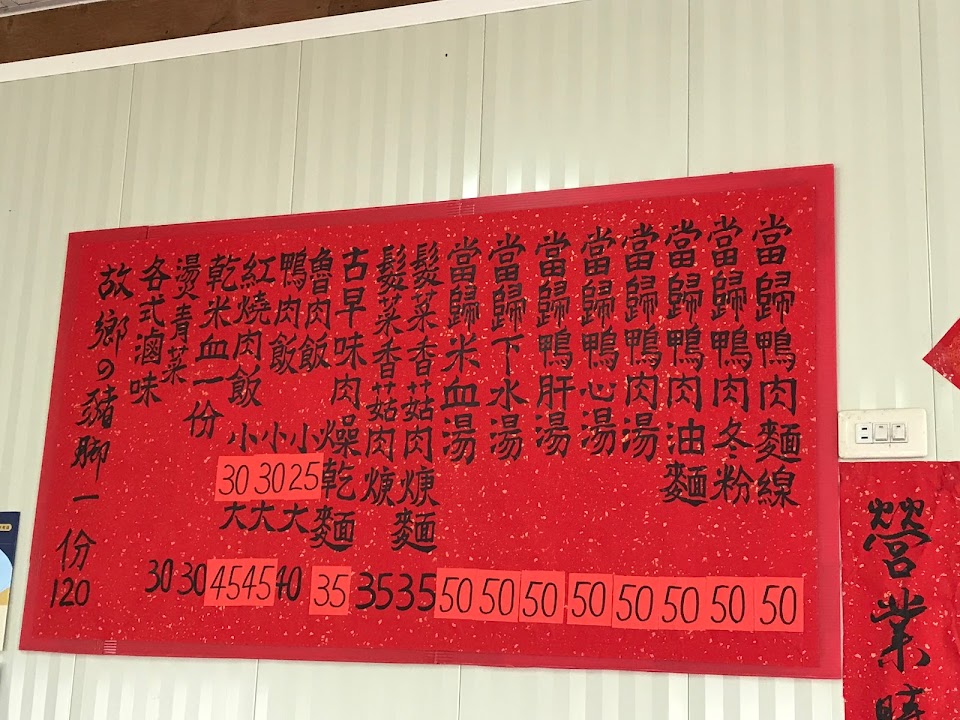 當歸鴨肉麵線 50
當歸鴨肉冬粉 50
當歸鴨肉油麵 50
當歸鴨肉湯 50
當歸鴨心湯 50
當歸鴨肝湯 50
當歸下水湯 50
當歸米血湯 50
髮菜香菇肉焿麵 35
髮菜香菇肉焿 35
古早味肉燥乾麵 35
魯肉飯 小 25 大 40
鴨肉飯 小 30 大 45
紅燒肉飯 小 30 大 45
乾米血一份 30
燙青菜 30
各式滷味
故鄉の豬腳一份 120
營業時